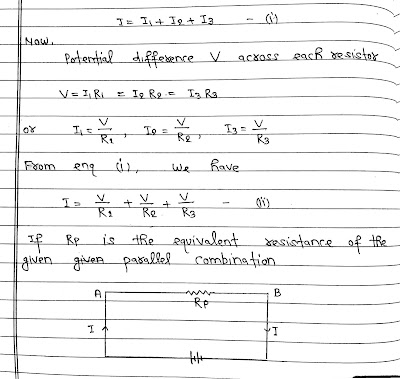 I = I₁ + I₂ + I₃ - (i)
Now,
Potential difference V across each resistor
V = I₁R₁ = I₂R₂ = I₃R₃
or I₁ = V/R₁ , I₂ = V/R₂ , I₃ = V/R₃
From enq (i), we have
I = V/R₁ + V/R₂ + V/R₃ - (ii)
If Rp is the equivalent resistance of the
given given parallel combination
A B
Rp
I I